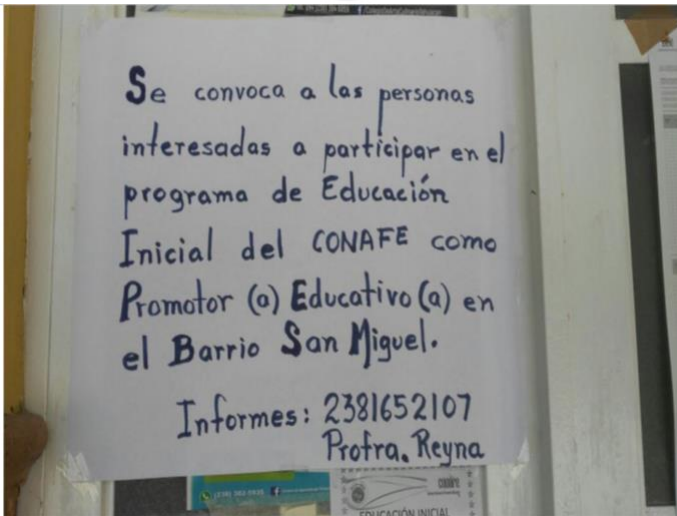 Se convoca a las personas
interesadas a participar en el
programa de Educación
Inicial del CONAFE como
Promotor (a) Educativo(a) en
el Barrio San Miguel.
Informes: 2381652107
Profra. Reyna
conafe
EDUCACIÓN INICIAL